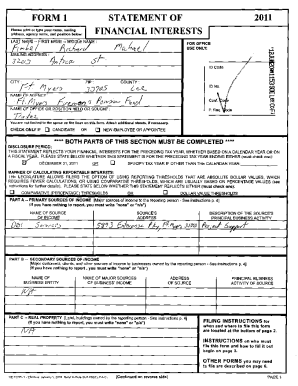 FORM 1 STATEMENT OF 2011
Please print or type your name, mailing address, agency name, and position below:
FINANCIAL INTERESTS
LAST NAME -- FIRST NAME -- MIDDLE NAME:
Michael
FOR OFFICE USE ONLY:
MAILING ADDRESS:
3203
CITY: ZIP: COUNTY:
Ft Myers Lee
NAME OF AGENCY:
Ft Myers Pension Fund
NAME OF OFFICE OR POSITION HELD OR SOUGHT:
You are not limited to the space on the lines on this form. Attach additional sheets, if necessary.
CHECK ONLY IF CANDIDATE OR NEW EMPLOYEE OR APPOINTEE
**** BOTH PARTS OF THIS SECTION MUST BE COMPLETED ****
DISCLOSURE PERIOD:
THIS STATEMENT REFLECTS YOUR FINANCIAL INTERESTS FOR THE PRECEDING TAX YEAR, WHETHER BASED ON A CALENDAR YEAR OR ON
A FISCAL YEAR. PLEASE STATE BELOW WHETHER THIS STATEMENT IS FOR THE PRECEDING TAX YEAR ENDING EITHER (must check one):
DECEMBER 31, 2011 OR SPECIFY TAX YEAR IF OTHER THAN THE CALENDAR YEAR:
MANNER OF CALCULATING REPORTABLE INTERESTS:
THE LEGISLATURE ALLOWS FILERS THE OPTION OF USING REPORTING THRESHOLDS THAT ARE ABSOLUTE DOLLAR VALUES, WHICH
REQUIRES FEWER CALCULATIONS, OR USING COMPARATIVE THRESHOLDS, WHICH ARE USUALLY BASED ON PERCENTAGE VALUES (see
instructions for further details). PLEASE STATE BELOW WHETHER THIS STATEMENT REFLECTS EITHER (must check one):
COMPARATIVE (PERCENTAGE) THRESHOLDS OR DOLLAR VALUE THRESHOLDS
PART A -- PRIMARY SOURCES OF INCOME [Major sources of income to the reporting person - See instructions p. 4]
(If you have nothing to report, you must write "none" or "n/a")
NAME OF SOURCE OF INCOME SOURCE'S ADDRESS DESCRIPTION OF THE SOURCE'S PRINCIPAL BUSINESS ACTIVITY
Services 5893 Enterprise Pkwy Ft Myers Support
PART B -- SECONDARY SOURCES OF INCOME
[Major customers, clients, and other sources of income to businesses owned by the reporting person - See instructions p. 4]
(If you have nothing to report, you must write "none" or "n/a")
NAME OF BUSINESS ENTITY NAME OF MAJOR SOURCES OF BUSINESS' INCOME ADDRESS OF SOURCE PRINCIPAL BUSINESS ACTIVITY OF SOURCE
NA
PART C -- REAL PROPERTY [Land, buildings owned by the reporting person - See instructions p. 4]
(If you have nothing to report, you must write "none" or "n/a")
NA
FILING INSTRUCTIONS for when and where to file this form are located at the bottom of page 2.
INSTRUCTIONS on who must file this form and how to fill it out begin on page 3.
OTHER FORMS you may need to file are described on page 6.
(Continued on reverse side) PAGE 1